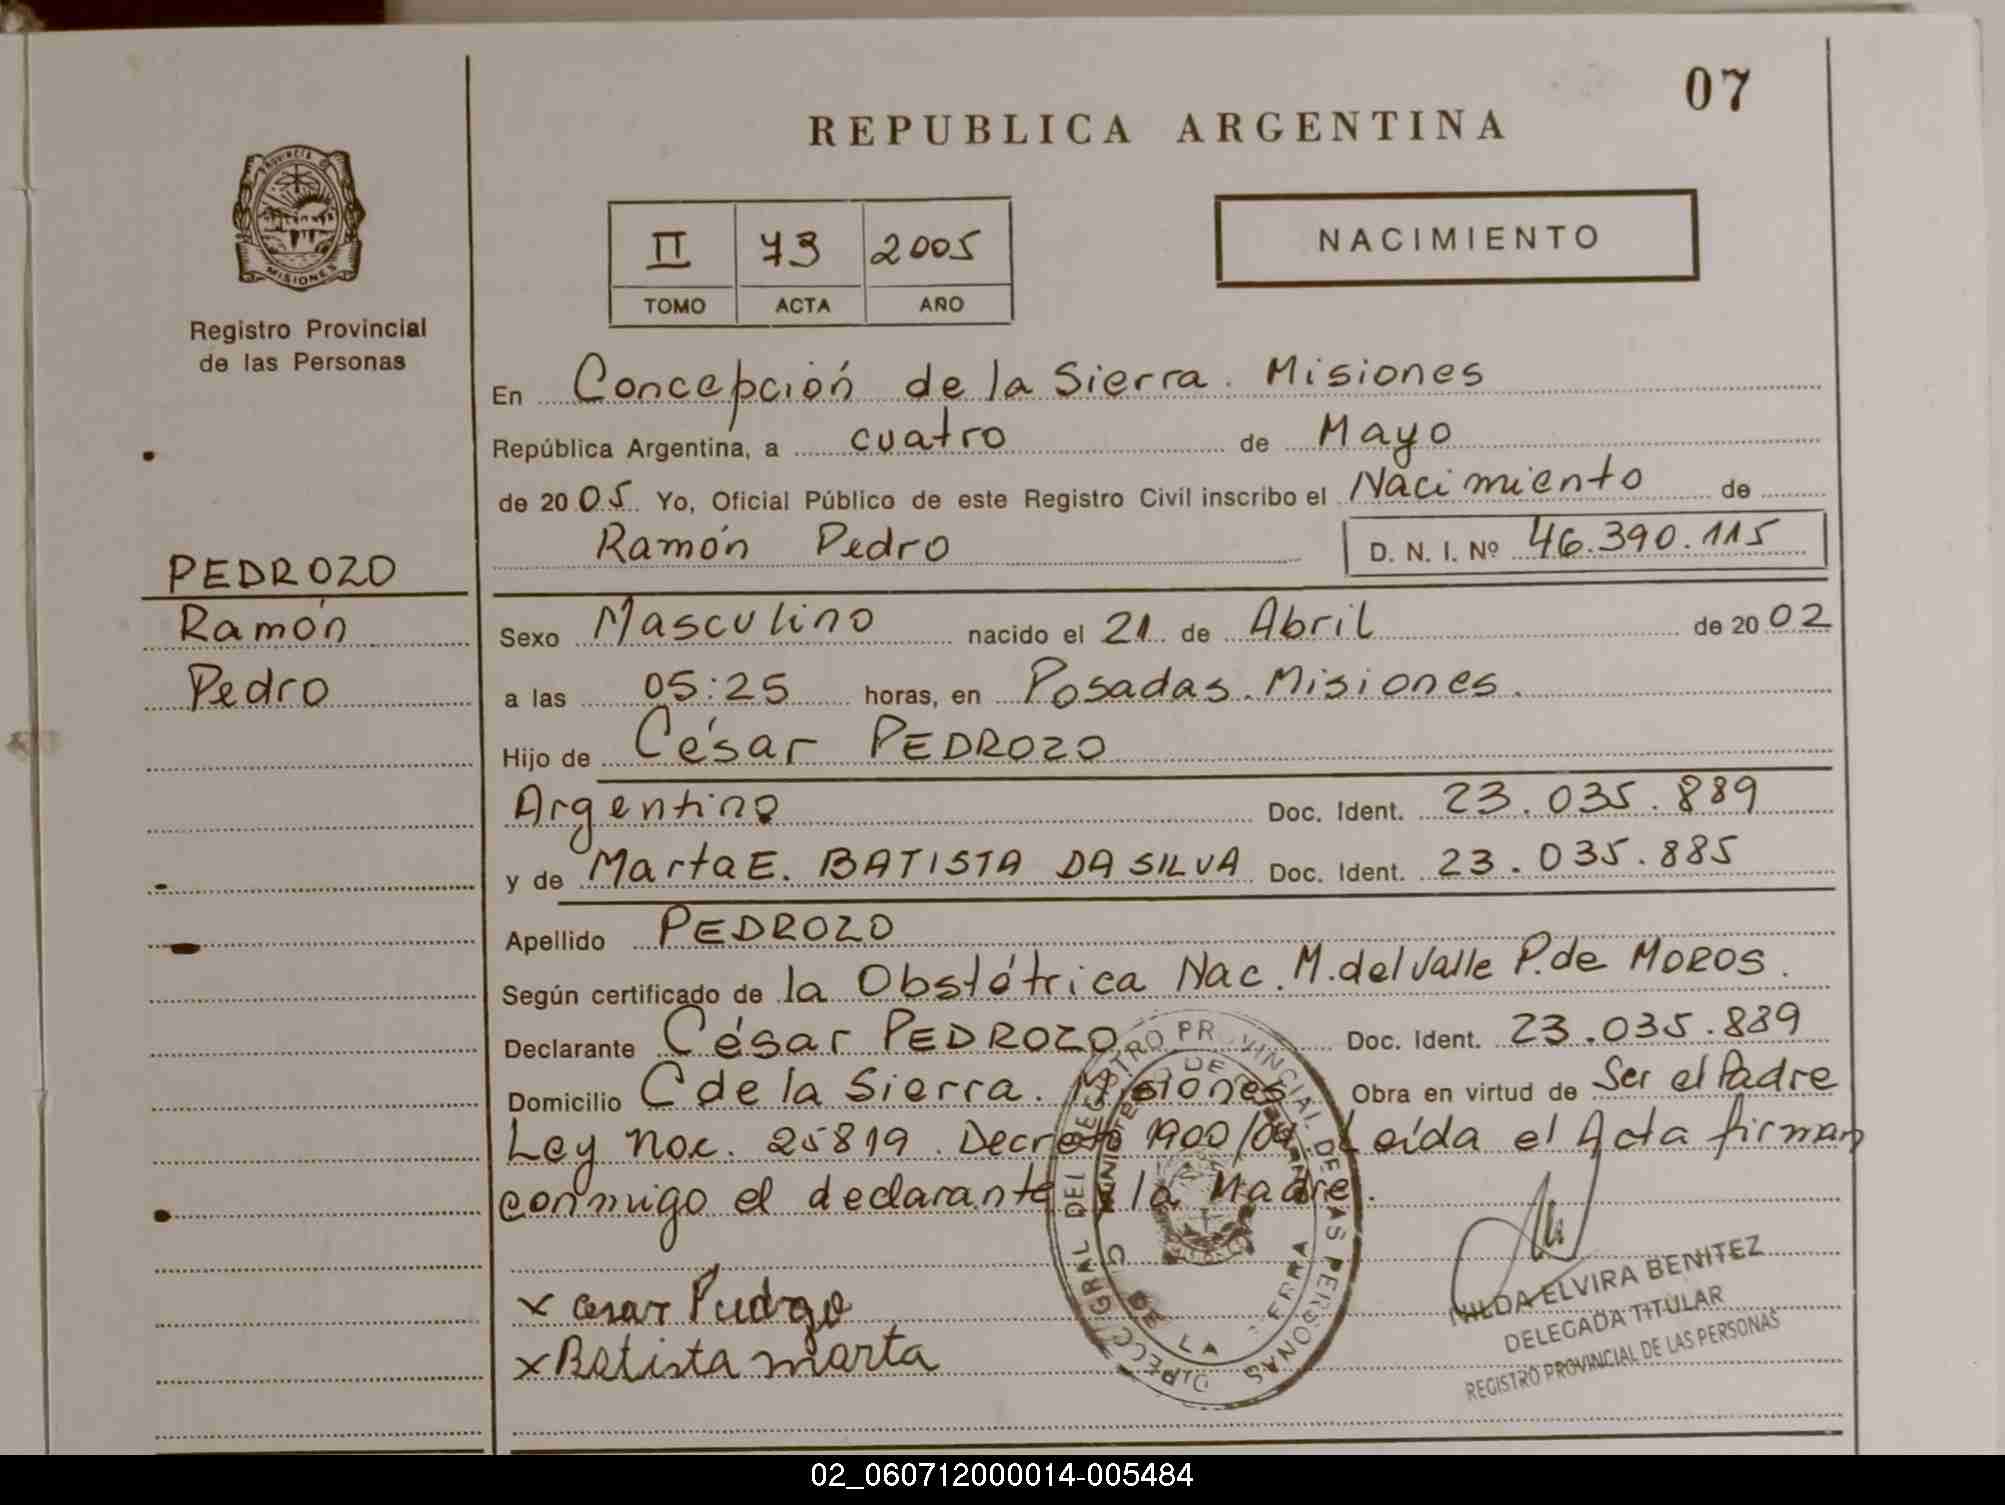 07
REPUBLICA ARGENTINA
PROVINCIA DE
MISIONES
Registro Provincial
de las Personas
II 73 2005
TOMO ACTA AÑO
NACIMIENTO
En Concepción de la Sierra. Misiones
República Argentina, a cuatro de Mayo
de 2005 Yo, Oficial Público de este Registro Civil inscribo el Nacimiento de
Ramón Pedro D. N. I. Nº 46.390.115
PEDROZO
Ramón
Pedro
Sexo Masculino nacido el 21 de Abril de 2002
a las 05:25 horas, en Posadas. Misiones.
Hijo de César PEDROZO
Argentino Doc. Ident. 23.035.889
y de Marta E. BATISTA DA SILVA Doc. Ident. 23.035.885
Apellido PEDROZO
Según certificado de la Obstétrica Nac. M. del Valle P. de MOROS.
Declarante César PEDROZO Doc. Ident. 23.035.889
Domicilio C de la Sierra. Misiones Obra en virtud de Ser el Padre
Ley Nac. 25819. Decreto 1900/04 Leída el Acta firman
conmigo el declarante y la Madre.
x cesar
x Batista marta
HILDA ELVIRA BENITEZ
DELEGADA TITULAR
REGISTRO PROVINCIAL DE LAS PERSONAS
DEL REGISTRO PROVINCIAL DE LAS PERSONAS
02_060712000014-005484